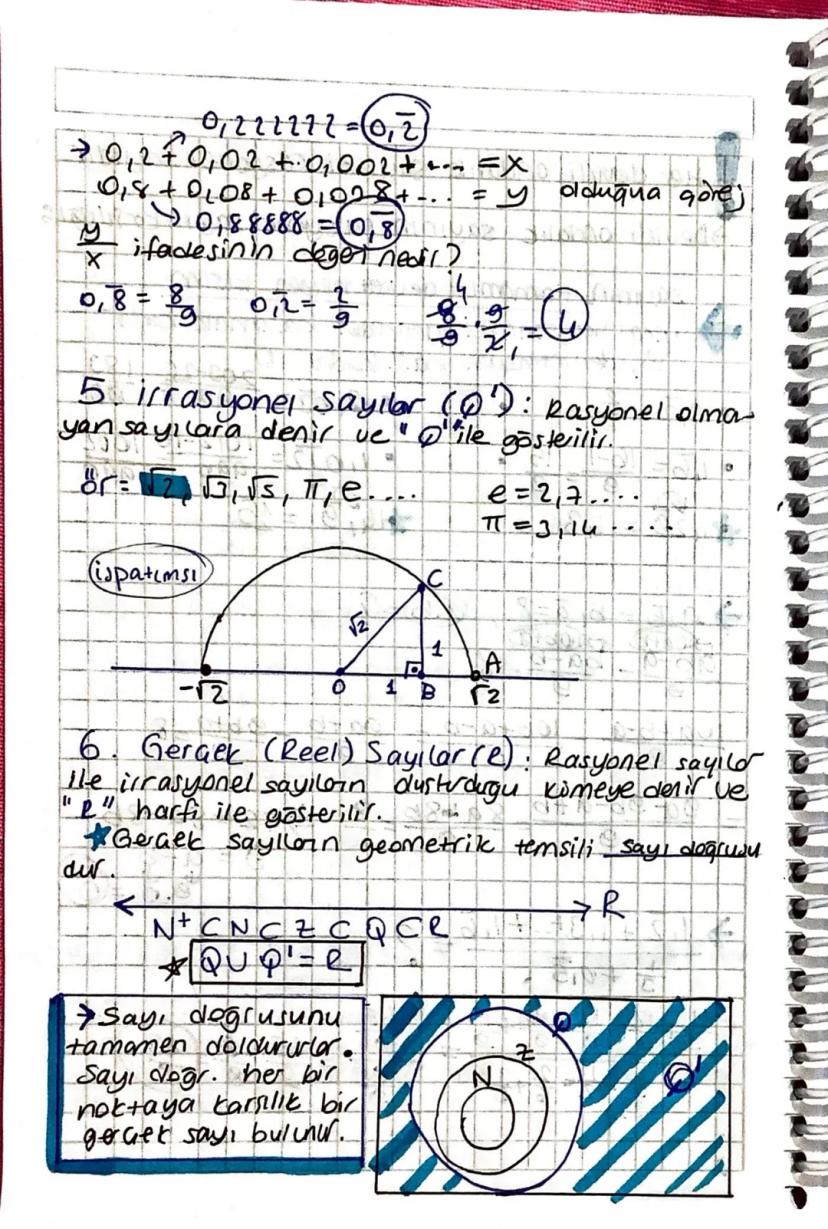 0,222222 = 0,2̅
→ 0,2 + 0,02 + 0,002 + ... = x
0,8 + 0,08 + 0,008 + ... = y olduğuna göre,
→ 0,88888 = 0,8̅
y/x ifadesinin değeri nedir?
0,8̅ = 8/9 0,2̅ = 2/9 8/9 · 9/2 = 4
5. İrrasyonel Sayılar (Q'): Rasyonel olma-
yan sayılara denir ve "Q'" ile gösterilir.
ör = √2, √3, √5, π, e.... e = 2,7....
π = 3,14 .....
ispatımsı
C
√2
1
A
-√2 0 1 B √2
6. Gerçek (Reel) Sayılar (R): Rasyonel sayılar
ile irrasyonel sayıların oluşturduğu kümeye denir ve
"R" harfi ile gösterilir.
★Gerçek sayıların geometrik temsili sayı doğrusu
dur.
R
N⁺ ⊂ N ⊂ Z ⊂ Q ⊂ R
★ Q ∪ Q' = R
→ Sayı doğrusunu
tamamen doldururlar.
Sayı doğr. her bir
noktaya karşılık bir
gerçek sayı bulunur.
Q
Z
N
Q'